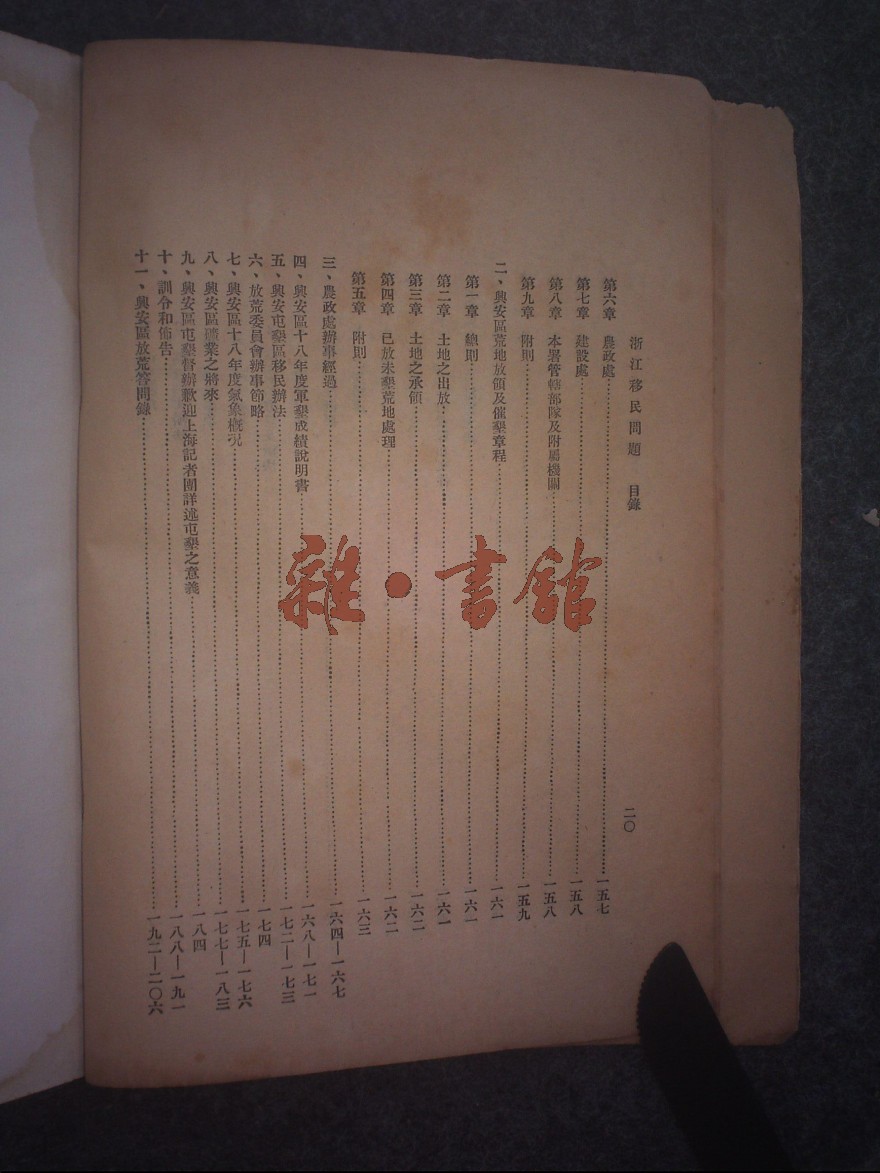 浙江移民問題　目錄　二〇
第六章　農政處……一五七
第七章　建設處……一五八
第八章　本署管轄部隊及附屬機關……一五八
第九章　附則……一五九
二、興安區荒地放領及催墾章程……一六一
第一章　總則……一六一
第二章　土地之出放……一六一
第三章　土地之承領……一六二
第四章　已放未墾荒地處理……一六二
第五章　附則……一六三
三、農政處辦事經過……一六四—一六七
四、興安區十八年度軍墾成績說明書……一六八—一七一
五、興安屯墾區移民辦法……一七二—一七三
六、放荒委員會辦事節略……一七四
七、興安區十八年度氣象概況……一七五—一七六
八、興安區礦業之將來……一七七—一八三
九、興安區屯墾督辦歡迎上海記者團詳述屯墾之意義……一八四
十、訓令和佈告……一八八—一九一
十一、興安區放荒答問錄……一九二—二〇六
雜·書館